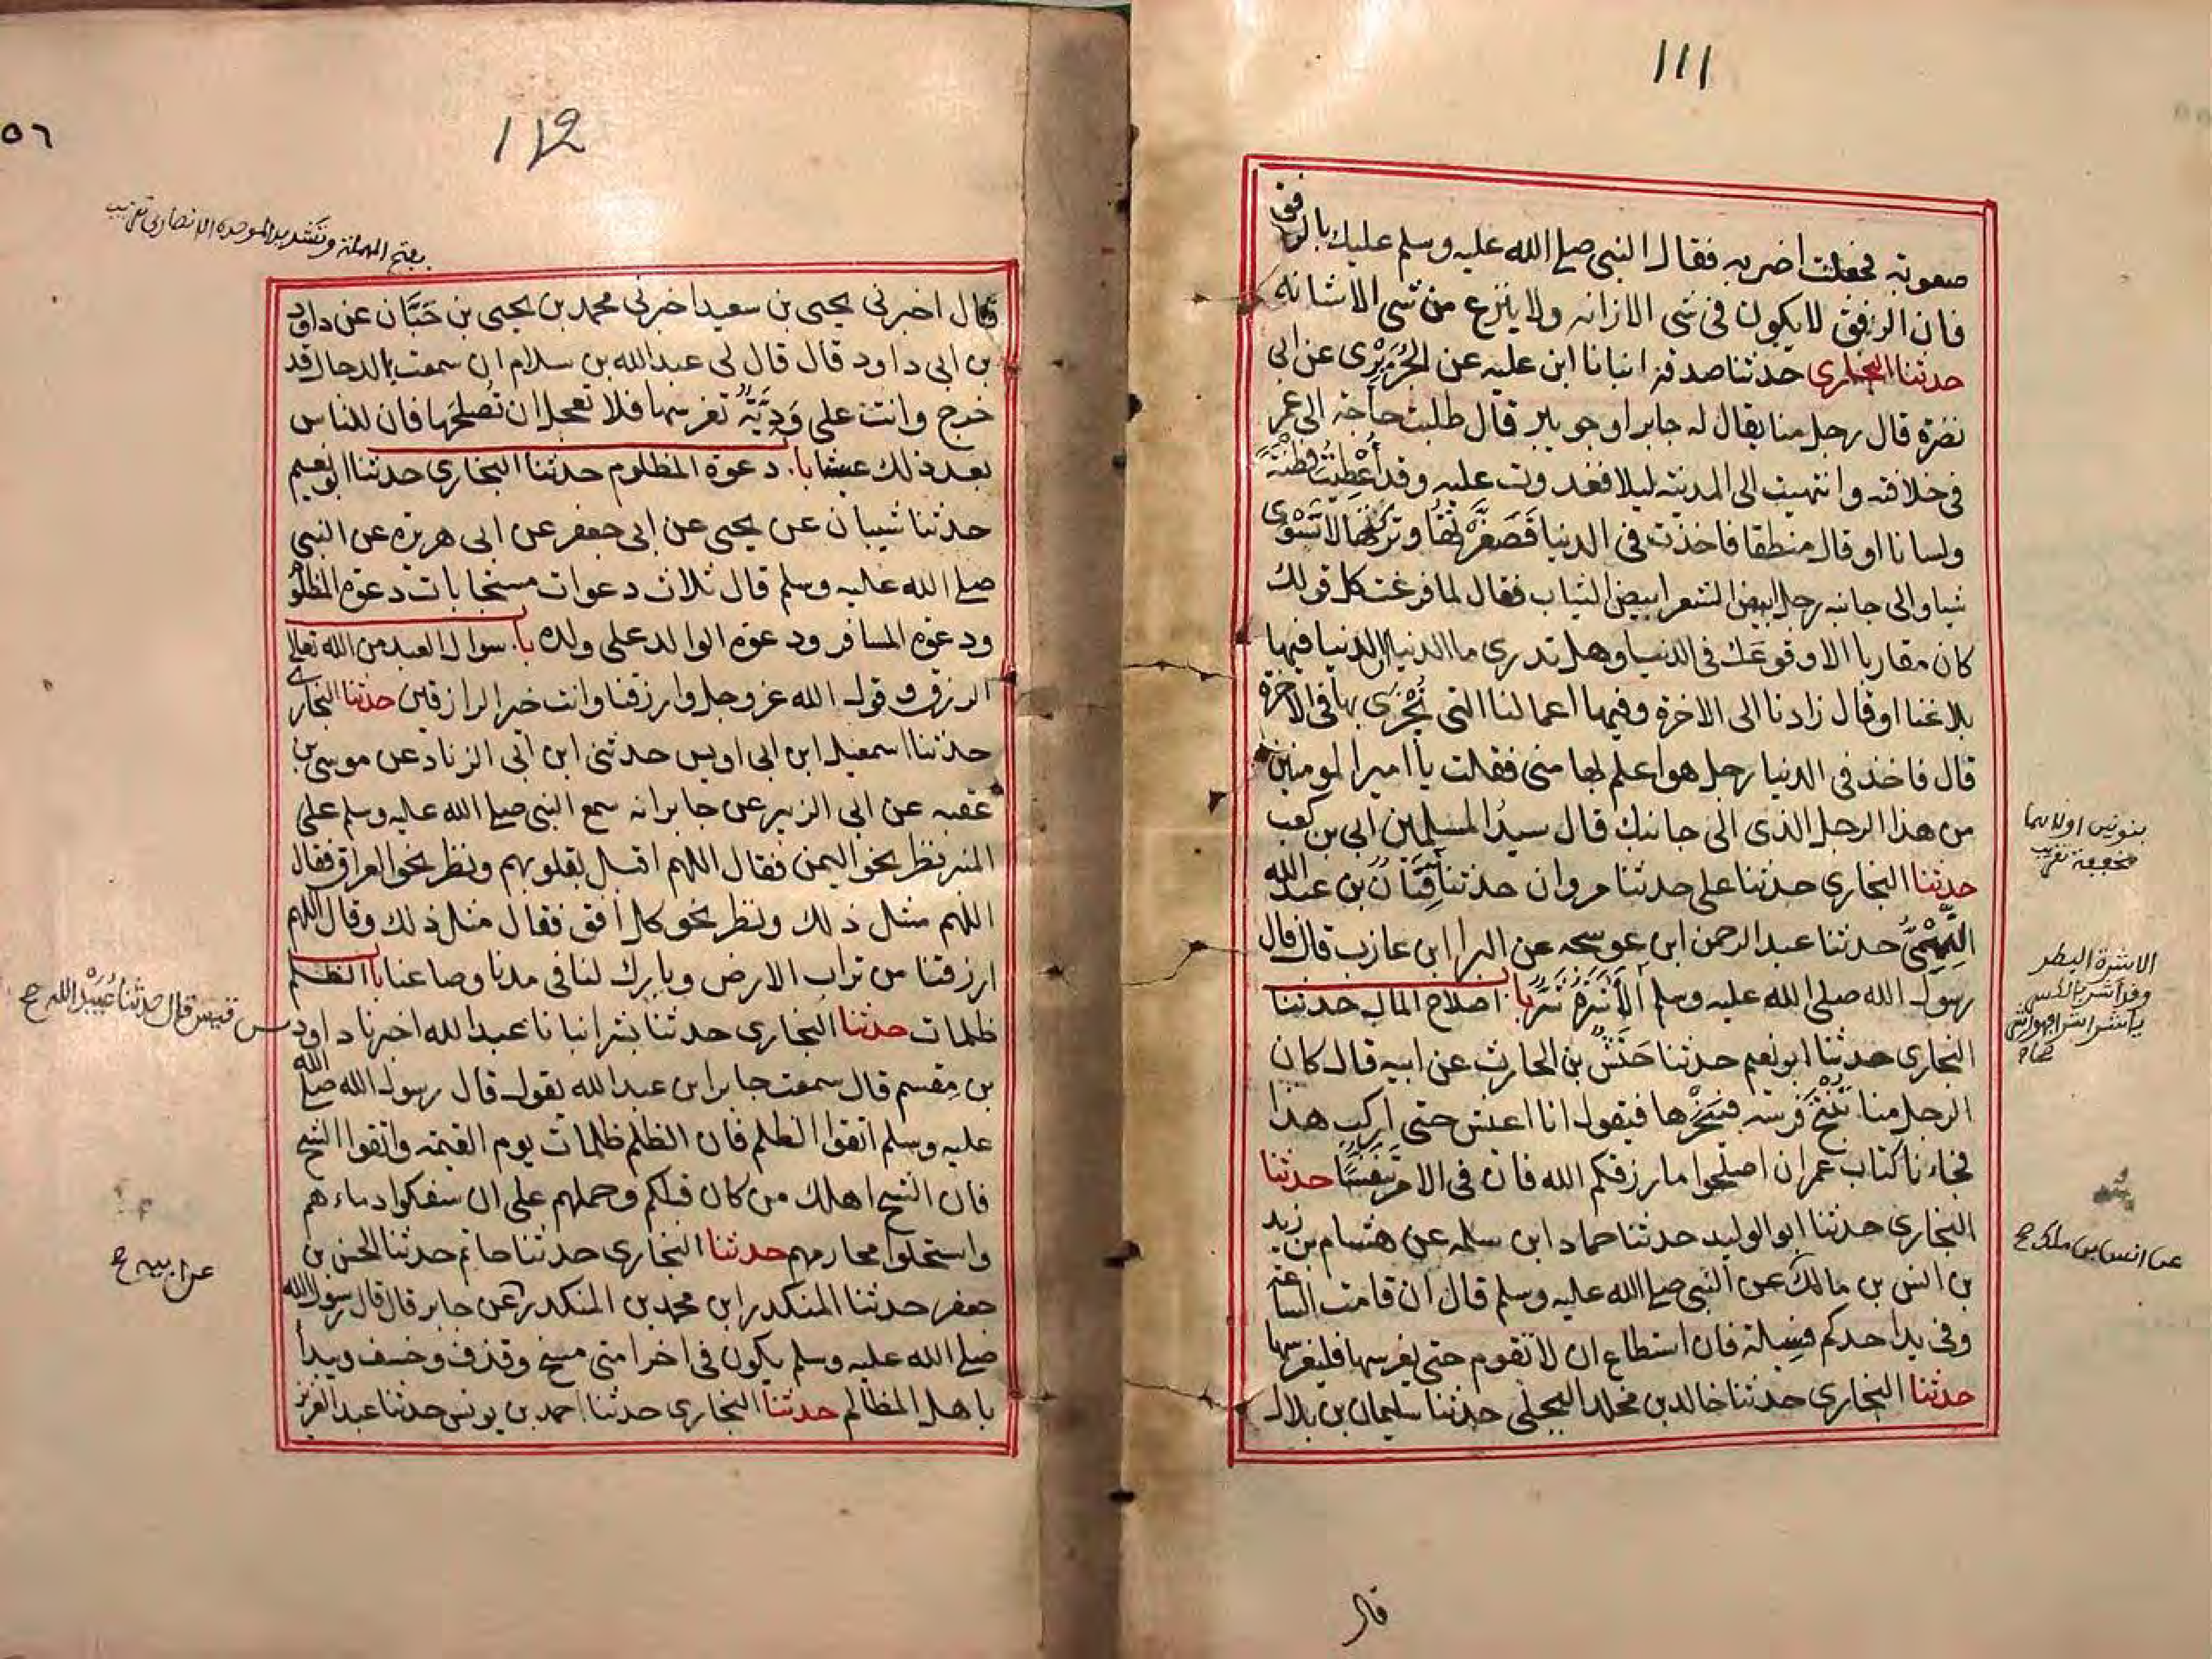 111
صعوبة فجعلت اضربه فقال النبي صلى الله عليه وسلم عليك بالرفق
فان الرفق لا يكون فى شى الا زانه ولا ينزع من شى الا شانه
حدثنا البخارى حدثنا صدقة انبانا ابن علية عن الجُرَيْرِى عن ابى
نضرة قال رجل منا يقال له جابر او جويبر قال طلبت حاجة الى عمر
فى خلافته وانتهيت الى المدينة ليلا فغدوت عليه وقد أُعْطِيتُ فطنةً
ولسانا او قال منطقا فاخذت فى الدنيا فَصَغَّرْتُهَا وتركتُها لا تَسْوَى
شيا والى جانبه رجل ابيض الشعر ابيض الثياب فقال لما فرغت كل قولك
كان مقاربا الا وقوعك فى الدنيا وهل تدرى ما الدنيا ان الدنيا فيها
بلاغنا او قال زادنا الى الاخرة وفيها اعمالنا التى نُجْزَى بها فى الاخرة
قال فاخذ فى الدنيا رجل هو اعلم بها منى فقلت يا امير المومنين
من هذا الرجل الذى الى جانبك قال سيدُ المسلمين ابى بن كعب
حدثنا البخارى حدثنا على حدثنا مروان حدثنا قِنَانُ بن عبد الله
النَّهْمِىُّ حدثنا عبد الرحمن ابن عوسجه عن البرا ابن عازب قال قال
رسول الله صلى الله عليه وسلم اَلأَشَرَةُ شَرٌّ با. اصلاح المال حدثنا
البخارى حدثنا ابو نعيم حدثنا حَنَشُ بن الحارث عن ابيه قال كان
الرجل منا تُنْتَجُ فَرَسُه فينحَرُها فيقول انا اعيش حتى اركب هذا
فجاءنا كتاب عمر ان اصلحوا ما رزقكم الله فان فى الامر تَنَفُّسًا حدثنا
البخارى حدثنا ابو الوليد حدثنا حماد ابن سلمه عن هشام بن زيد
بن انس بن مالك عن النبى صلى الله عليه وسلم قال ان قامت الساعة
وفى يد احدكم فسيلة فان استطاع ان لا تقوم حتى يغرسها فليغرسها
حدثنا البخارى حدثنا خالد بن مخلد البجلى حدثنا سليمان بن بلال
بنونين اولاهما
مخففة تقريب
الاشرة البطر
وقد اشر بالكسر
عن انس بن مالك ح
قال
112
٥٦
بفتح المهملة وتشديد الموحدة الانصارى تقريب
قال اخبرنى يحيى بن سعيد اخبرنى محمد بن يحيى بن حَبَّان عن داود
بن ابى داود قال قال لى عبد الله بن سلام ان سمعت بالدجال قد
خرج وانت على وَدِيَّةٍ تغرسها فلا تعجل ان تُصلحها فان للناس
بعد ذلك عيشا با. دعوة المظلوم حدثنا البخارى حدثنا ابو نعيم
حدثنا شيبان عن يحيى عن ابى جعفر عن ابى هريره عن النبى
صلى الله عليه وسلم قال ثلاث دعوات مستجابات دعوة المظلوم
ودعوة المسافر ودعوة الوالد على ولده با. سوال العبد من الله تعالى
الرزق وقول الله عز وجل وارزقنا وانت خير الرازقين حدثنا البخارى
حدثنا اسمعيل ابن ابى اويس حدثنى ابن ابى الزناد عن موسى بن
عقبه عن ابى الزبير عن جابر انه سمع النبى صلى الله عليه وسلم على
المنبر نظر نحو اليمن فقال اللهم اقبل بقلوبهم ونظر نحو العراق فقال
اللهم مثل ذلك ونظر نحو كل افق فقال مثل ذلك وقال اللهم
ارزقنا من تراب الارض وبارك لنا فى مدنا وصاعنا با الظلم
ظلمات حدثنا البخارى حدثنا بشر انبانا عبد الله اخبرنا داود
بن مِقسم قال سمعت جابر ابن عبد الله يقول قال رسول الله صلى الله
عليه وسلم اتقوا الظلم فان الظلم ظلمات يوم القيمة واتقوا الشح
فان الشح اهلك من كان قبلكم وحملهم على ان سفكوا دماءهم
واستحلوا محارمهم حدثنا البخارى حدثنا حاتم حدثنا الحسن بن
جعفر حدثنا المنكدر ابن محمد بن المنكدر عن جابر قال قال رسول الله
صلى الله عليه وسلم يكون فى اخر امتى مسخ وقذف وخسف ويبدأ
باهل المظالم حدثنا البخارى حدثنا احمد بن يونس حدثنا عبد العزيز
بن قيس قال حدثنا عُبَيْد الله ح
عن ابيه ح